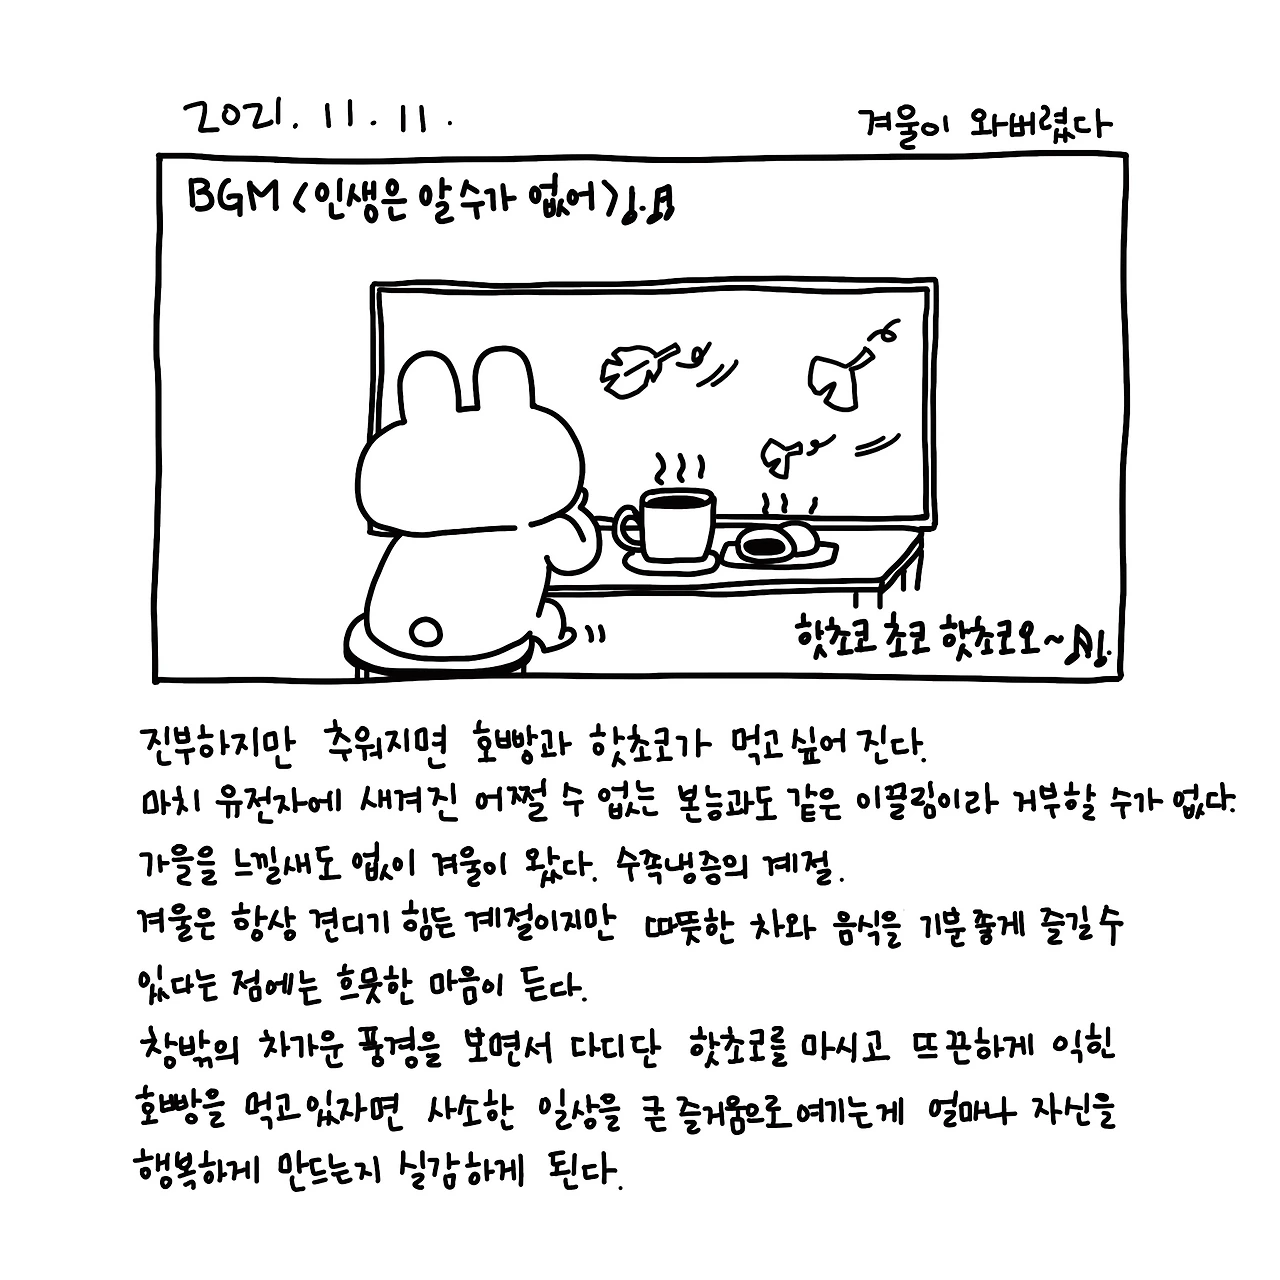 2021. 11. 11.
겨울이 와버렸다
BGM <인생은 알 수가 없어>♩.♬
핫초코 초코 핫초코오~♬♩.
진부하지만 추워지면 호빵과 핫초코가 먹고싶어 진다.
마치 유전자에 새겨진 어쩔 수 없는 본능과도 같은 이끌림이라 거부할 수가 없다.
가을을 느낄새도 없이 겨울이 왔다. 수족냉증의 계절.
겨울은 항상 견디기 힘든 계절이지만 따뜻한 차와 음식을 기분좋게 즐길 수
있다는 점에는 흐뭇한 마음이 든다.
창밖의 차가운 풍경을 보면서 다디단 핫초코를 마시고 뜨끈하게 익힌
호빵을 먹고있자면 사소한 일상을 큰 즐거움으로 여기는게 얼마나 자신을
행복하게 만드는지 실감하게 된다.